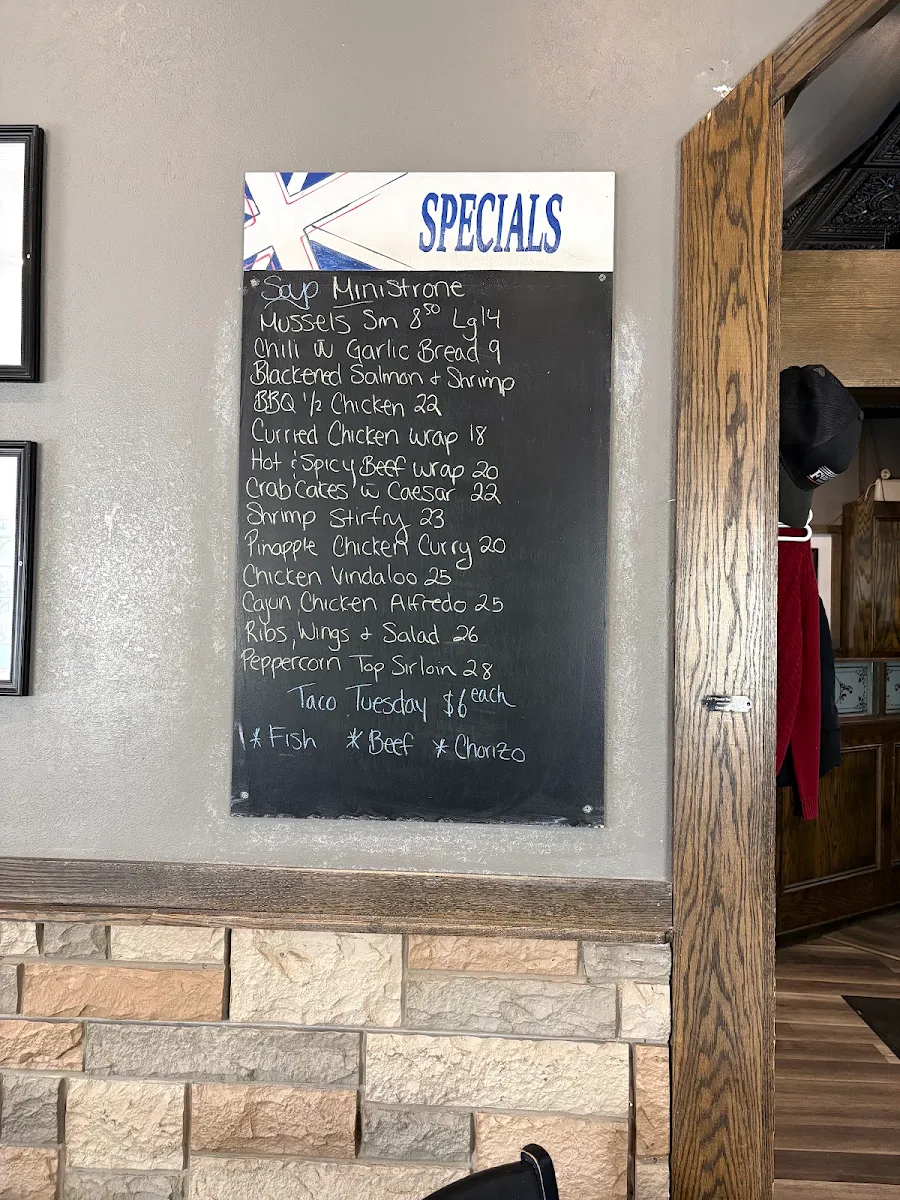 SPECIALS
Soup Ministrone
Mussels Sm 8⁵⁰ Lg 14
Chili w Garlic Bread 9
Blackened Salmon & Shrimp
BBQ 1/2 Chicken 22
Curried Chicken wrap 18
Hot & Spicy Beef wrap 20
Crab Cakes w Caesar 22
Shrimp Stirfry 23
Pinapple Chicken Curry 20
Chicken Vindaloo 25
Cajun Chicken Alfredo 25
Ribs, Wings & Salad 26
Peppercorn Top Sirloin 28
Taco Tuesday $6 each
* Fish * Beef * Chorizo